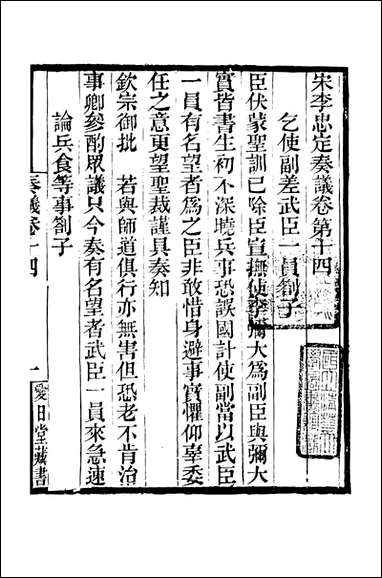 宋李忠定奏議卷第十四
乞使副差武臣一員劄子
臣伏蒙聖訓已除臣宣撫使李彌大爲副臣與彌大
實皆書生初不深曉兵事恐誤國計使副當以武臣
一員有名望者爲之臣非敢惜身避事實懼仰辜委
任之意更望聖裁謹具奏知
欽宗御批　若與師道俱行亦無害但恐老不肯治
事卿參酌眾議只今奏有名望者武臣一員來急速
論兵食等事劄子
奏議卷十四
一
愛日堂藏書